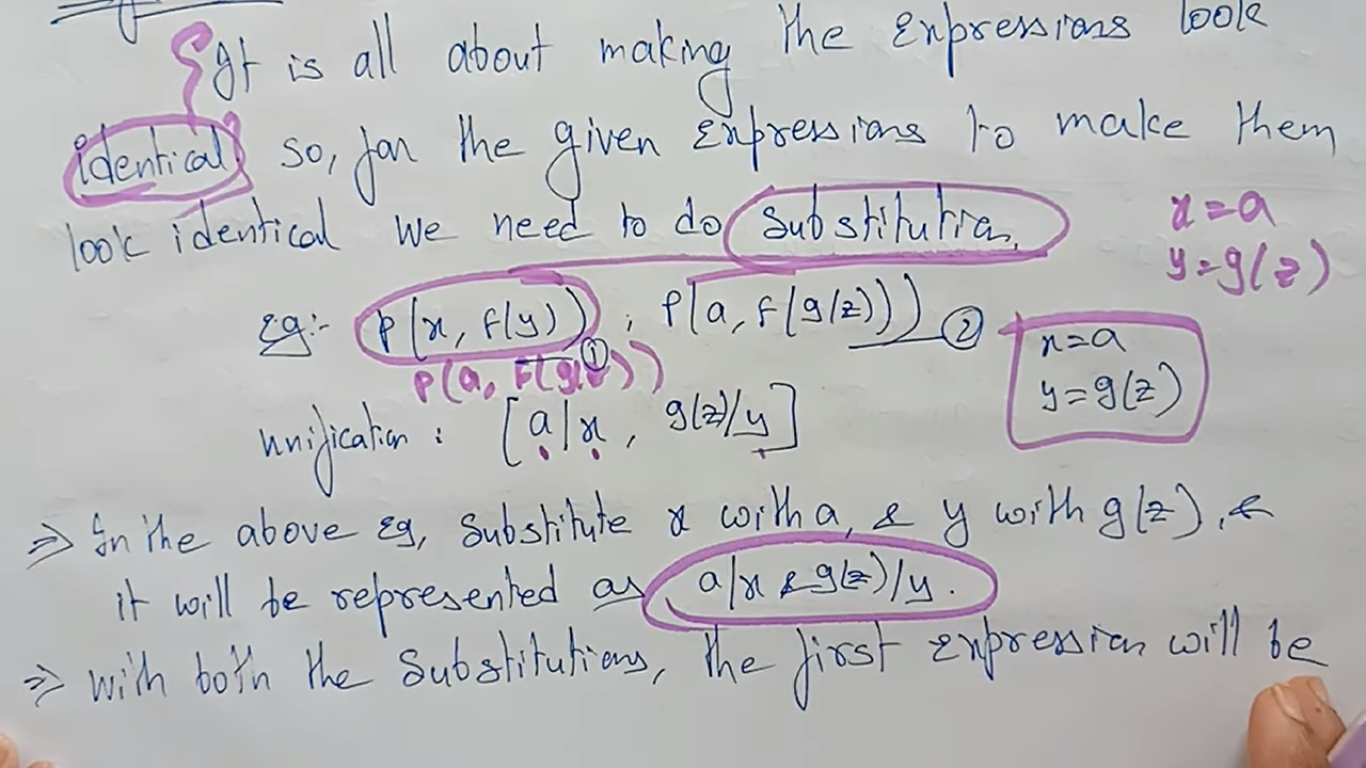 It is all about making the Expressions look
identical so, for the given Expressions to make them
look identical we need to do Substitution.
x=a
y=g(z)
Eg:- P(x, F(y)) ; P(a, F(g(z))) ②
①
P(a, F(g(z)))
x=a
y=g(z)
unification : [a/x, g(z)/y]
⇒ In the above Eg, Substitute x with a, & y with g(z),
it will be represented as a/x & g(z)/y.
⇒ with both the Substitutions, the first Expression will be